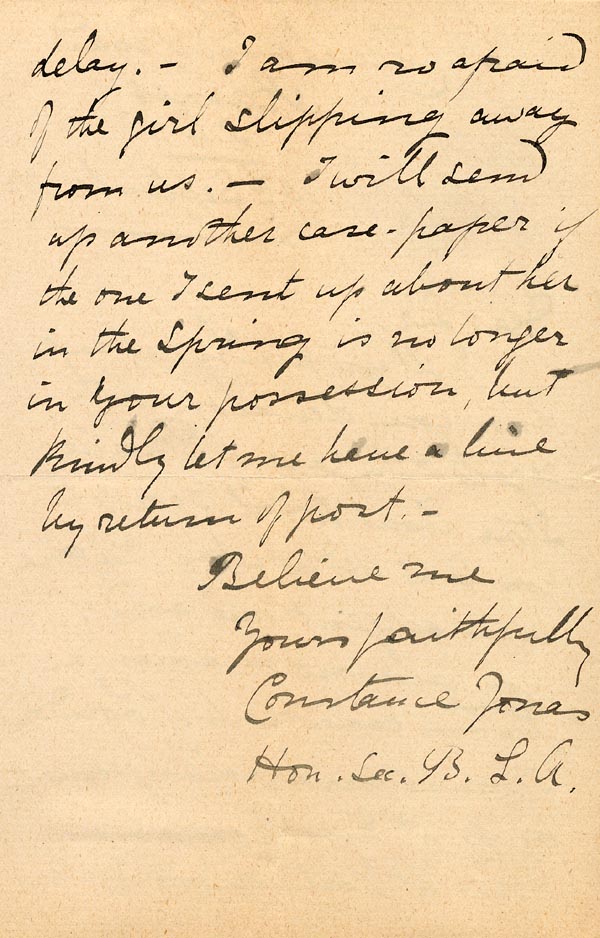 delay. - I am so afraid
of the girl slipping away
from us. - I will send
up another case-paper if
the one I sent up about her
in the Spring is no longer
in your possession, but
kindly let me have a line
by return of post. -
Believe me
Yours faithfully
Constance Jonas
Hon. Sec. B. L. A.